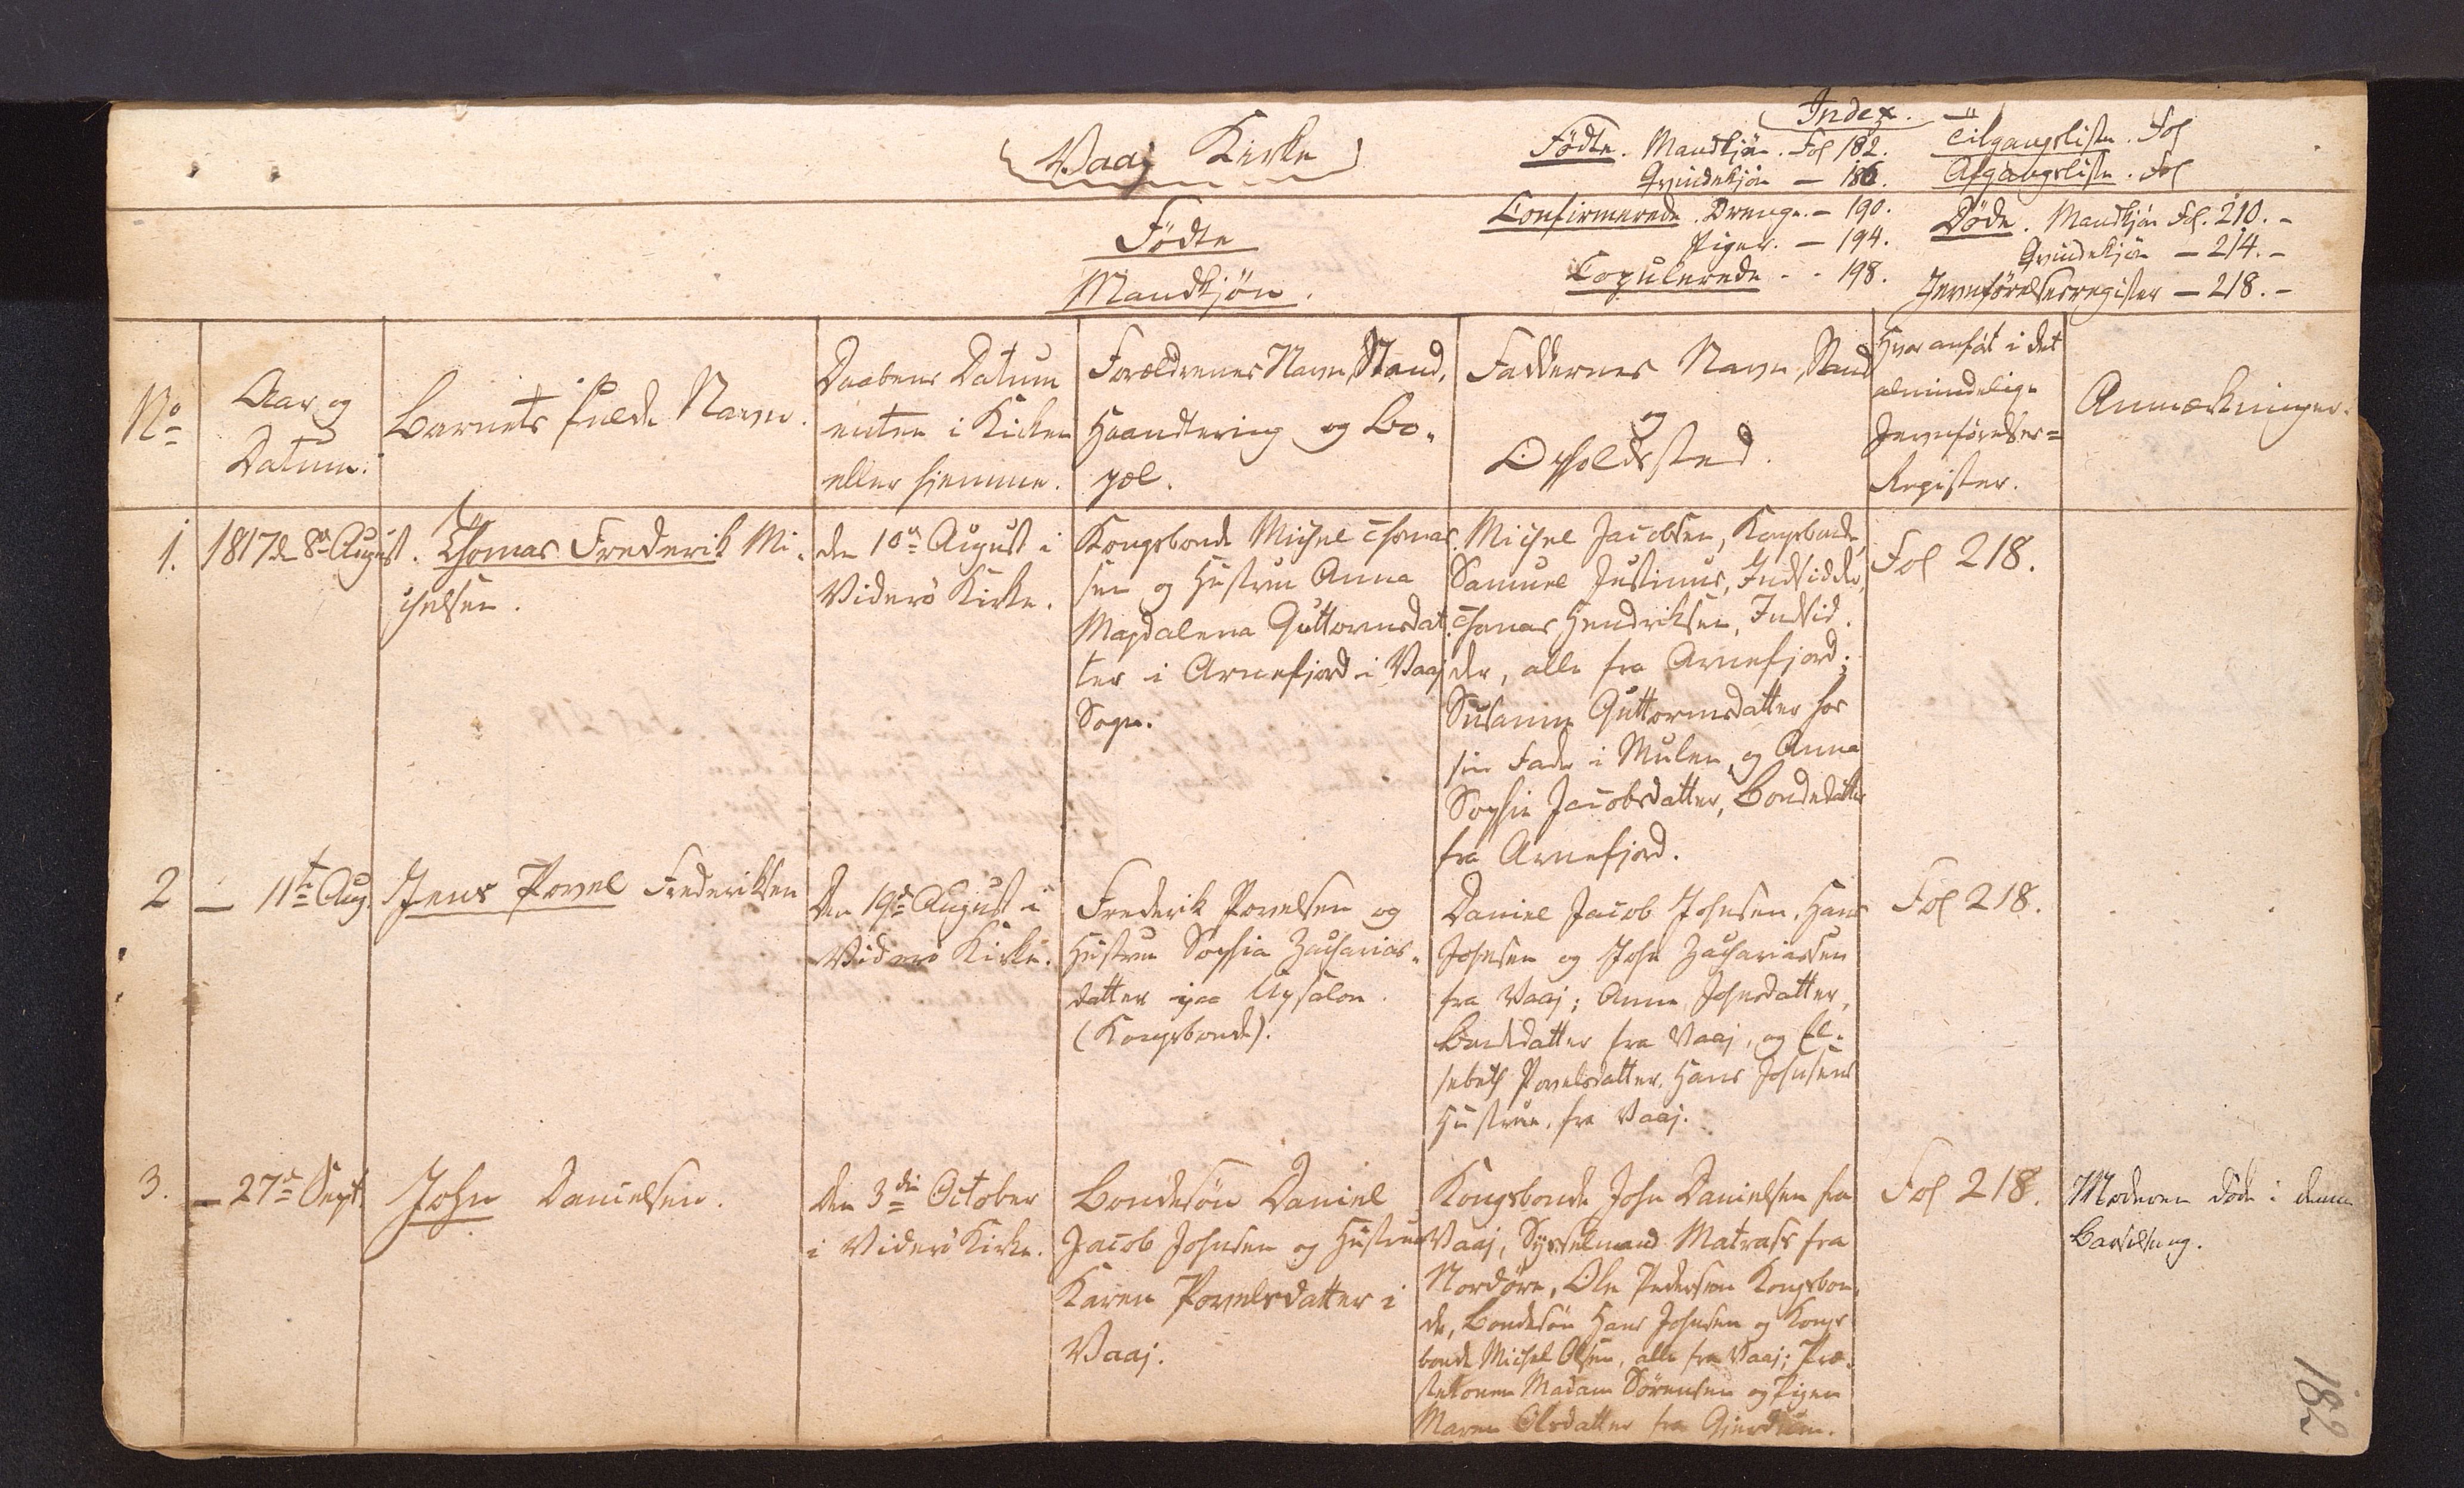 Vaaj Kirke
Index.
Födte. Mandkjön. Fol 182.
Qvindekjön — 186.
Confirmerede. Drenge. – 190.
Piger. — 194.
Copulerede - - 198.
Tilgangsliste. Fol
Afgangsliste. Fol
Döde. Mandkjön Fol. 210. –
Qvindekjön — 214. –
Jevnförelsesregister — 218. –
Födte
Mandkjön.
No
Aar og
Datum.
Barnets fulde Navn.
Daabens Datum
enten i Kirken
eller hjemme.
Forældrenes Navn, Stand,
Haandtering og Bo-
pæl.
Faddernes Navn, Stand
og
Opholdssted.
Hvor anfört i det
almindelige
Jevnförelses=
Register.
Anmærkninger.
1.
1817 d 8de August.
Thomas Frederik Mi-
chelsen.
den 10de August i
Viderö Kirke.
Kongsbonde Michel Thomas-
sen og Hustrue Anna
Magdalena Guttormsdat-
ter i Arnefjord i Vaaj
Sogn.
Michel Jacobsen, Kongsbonde,
Samuel Justinus, Indsidder,
Thomas Hendriksen, Indsid-
der, alle fra Arnefjord;
Susanne Guttormsdatter hos
sin Fader i Mulen, og Anna
Sophie Jacobsdatter, Bondedatter
fra Arnefjord.
Fol 218.
2
— 11te Aug.
Jens Povel Frederiksen
Den 19de August i
Viderö Kirke.
Frederik Povelsen og
Hustrue Sophia Zacharias-
datter paa Apsalon.
(Kongsbonde).
Daniel Jacob Johnsen, Hans
Johnsen og John Zachariassen
fra Vaaj; Anna Johnsdatter,
Bondedatter fra Vaaj, og El-
sebeth Povelsdatter, Hans Johnsens
Hustrue, fra Vaaj.
Fol 218.
3.
— 27de Sept
John Danielsen.
Den 3die October
i Viderö Kirke.
Bondesön Daniel
Jacob Johnsen og Hustrue
Karen Povelsdatter i
Vaaj.
Kongsbonde John Danielsen fra
Vaaj, Sysselmand Matrass fra
Nordöre, Ole Pedersen Kongsbon-
de, Bondesön Hans Johnsen og Kongs
bonde Michel Olsen, alle fra Vaaj; Præ-
stekonen Madam Sörensen og Pigen
Maren Olsdatter fra
Fol 218.
Moderen döde i denne
Barselseng.
182